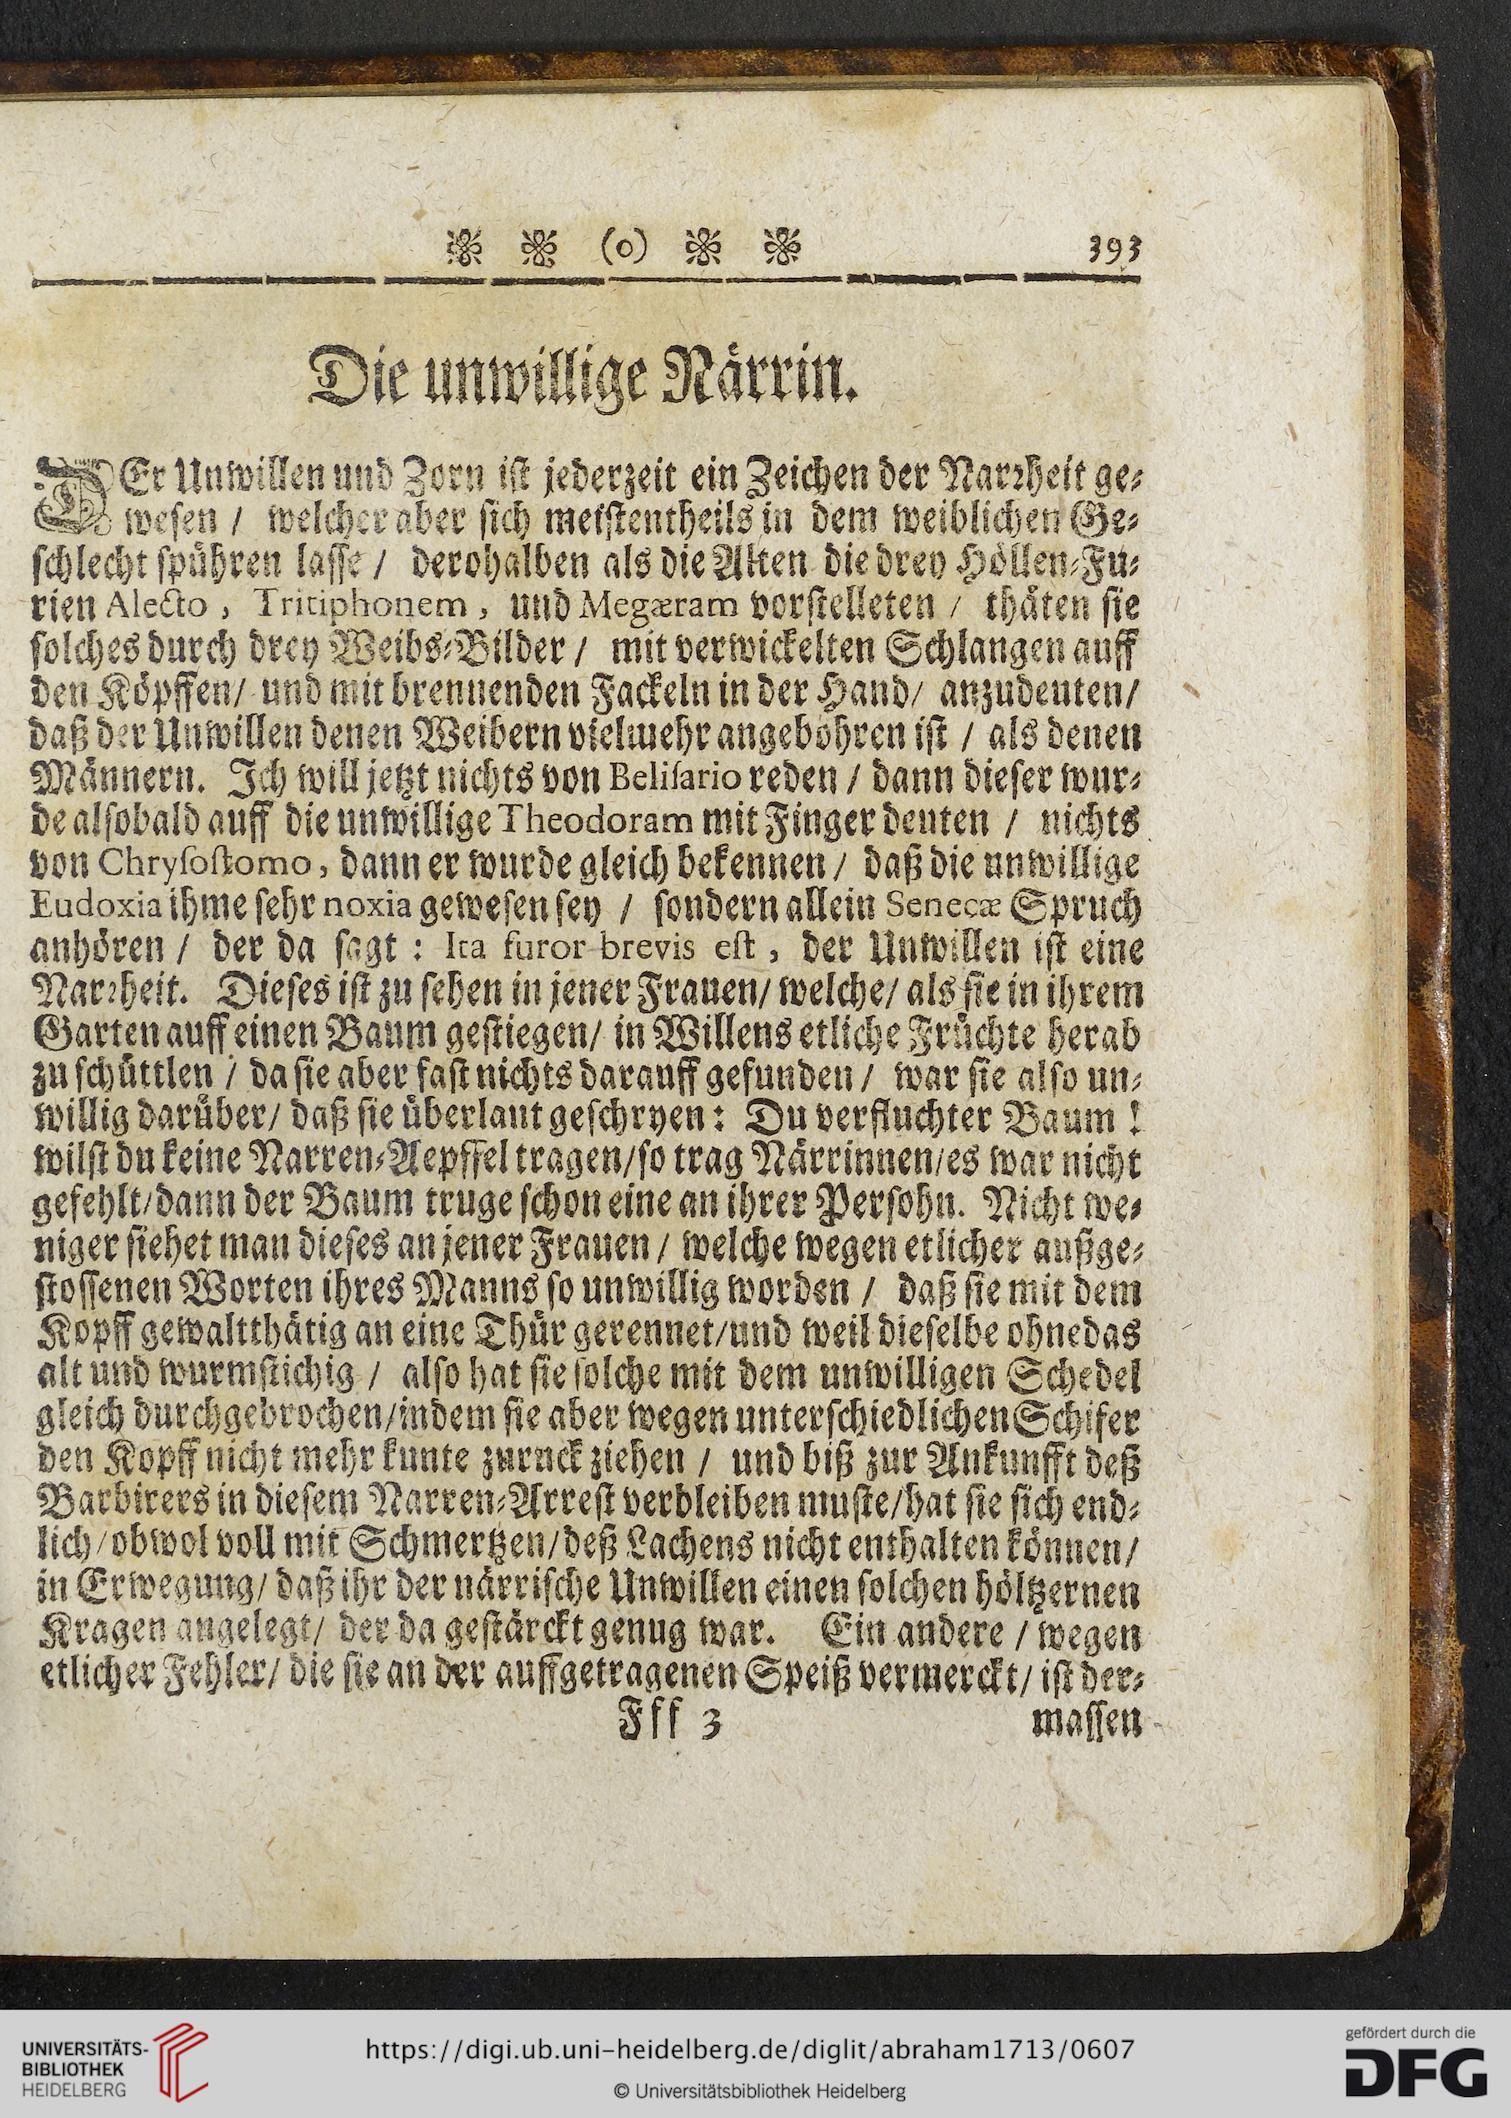 (o) 393
Die unwillige Närrin.
DEr Unwillen und Zorn iſt jederzeit ein Zeichen der Narꝛheit ge⸗
weſen / welcher aber ſich meiſtentheils in dem weiblichen Ge⸗
ſchlecht ſpühren laſſe / derohalben als die Alten die drey Höllen⸗Fu⸗
rien Alecto, Tritiphonem, und Megæram vorſtelleten / thäten ſie
ſolches durch drey Weibs⸗Bilder / mit verwickelten Schlangen auff
den Köpffen/ und mit brennenden Fackeln in der Hand/ anzudeuten/
daß der Unwillen denen Weibern vielmehr angebohren iſt / als denen
Männern. Ich will jetzt nichts von Beliſario reden / dann dieſer wur⸗
de alſobald auff die unwillige Theodoram mit Finger deuten / nichts
von Chryſoſtomo, dann er wurde gleich bekennen / daß die unwillige
Eudoxia ihme ſehr noxia geweſen ſey / ſondern allein Senecæ Spruch
anhören / der da ſagt : Ita furor brevis eſt, der Unwillen iſt eine
Narꝛheit. Dieſes iſt zu ſehen in jener Frauen/ welche/ als ſie in ihrem
Garten auff einen Baum geſtiegen/ in Willens etliche Früchte herab
zu ſchüttlen / da ſie aber faſt nichts darauff gefunden / war ſie alſo un⸗
willig darüber/ daß ſie überlaut geſchryen: Du verfluchter Baum !
wilſt du keine Narren⸗Aepffel tragen/ſo trag Närrinnen/es war nicht
gefehlt/dann der Baum truge ſchon eine an ihrer Perſohn. Nicht we⸗
niger ſiehet man dieſes an jener Frauen / welche wegen etlicher außge⸗
ſtoſſenen Worten ihres Manns ſo unwillig worden / daß ſie mit dem
Kopff gewaltthätig an eine Thür gerennet/und weil dieſelbe ohnedas
alt und wurmſtichig / alſo hat ſie ſolche mit dem unwilligen Schedel
gleich durchgebrochen/indem ſie aber wegen unterſchiedlichen Schifer
den Kopff nicht mehr kunte zuruck ziehen / und biß zur Ankunfft deß
Barbirers in dieſem Narren⸗Arreſt verbleiben muſte/hat ſie ſich end⸗
lich/obwol voll mit Schmertzen/deß Lachens nicht enthalten können/
in Erwegung/ daß ihr der närriſche Unwillen einen ſolchen höltzernen
Kragen angelegt/ der da geſtärckt genug war. Ein andere / wegen
etlicher Fehler/ die ſie an der auffgetragenen Speiß vermerckt/ iſt der⸗
Fff 3 maſſen
UNIVERSITÄTS-
BIBLIOTHEK
HEIDELBERG
https://digi.ub.uni-heidelberg.de/diglit/abraham1713/0607
© Universitätsbibliothek Heidelberg
gefördert durch die
DFG